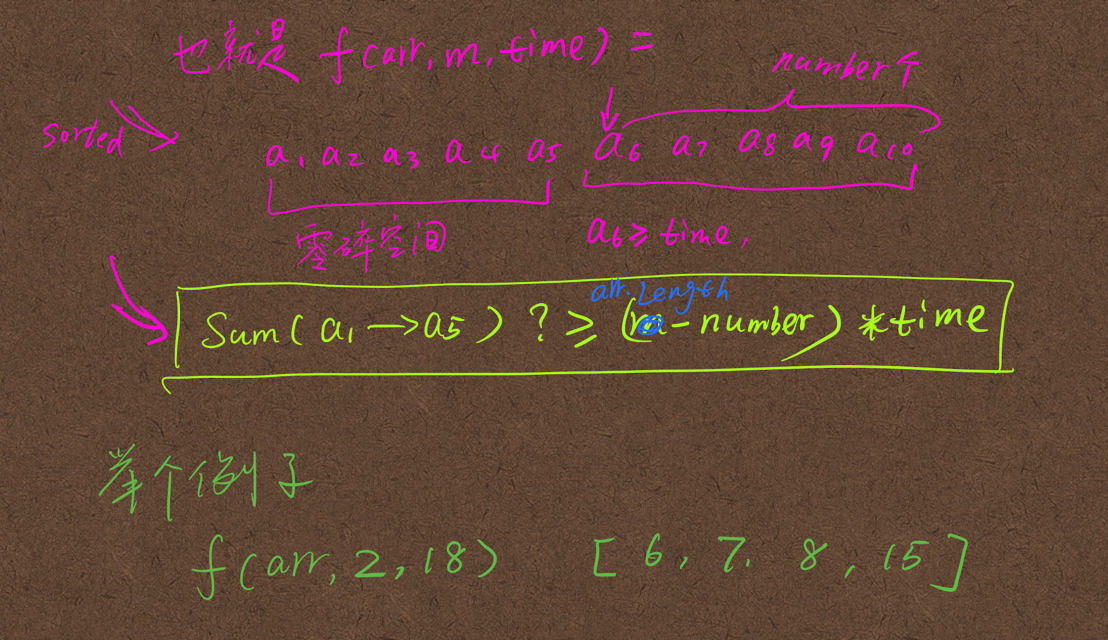 也就是 f(arr, m, time) =
number个
sorted
a1 a2 a3 a4 a5 a6 a7 a8 a9 a10
零碎空间 a6 ≥ time,
arr.Length
Sum( a1 → a5 ) ? ≥ ( - number) * time
举个例子
f(arr, 2, 18) [ 6, 7. 8, 15 ]